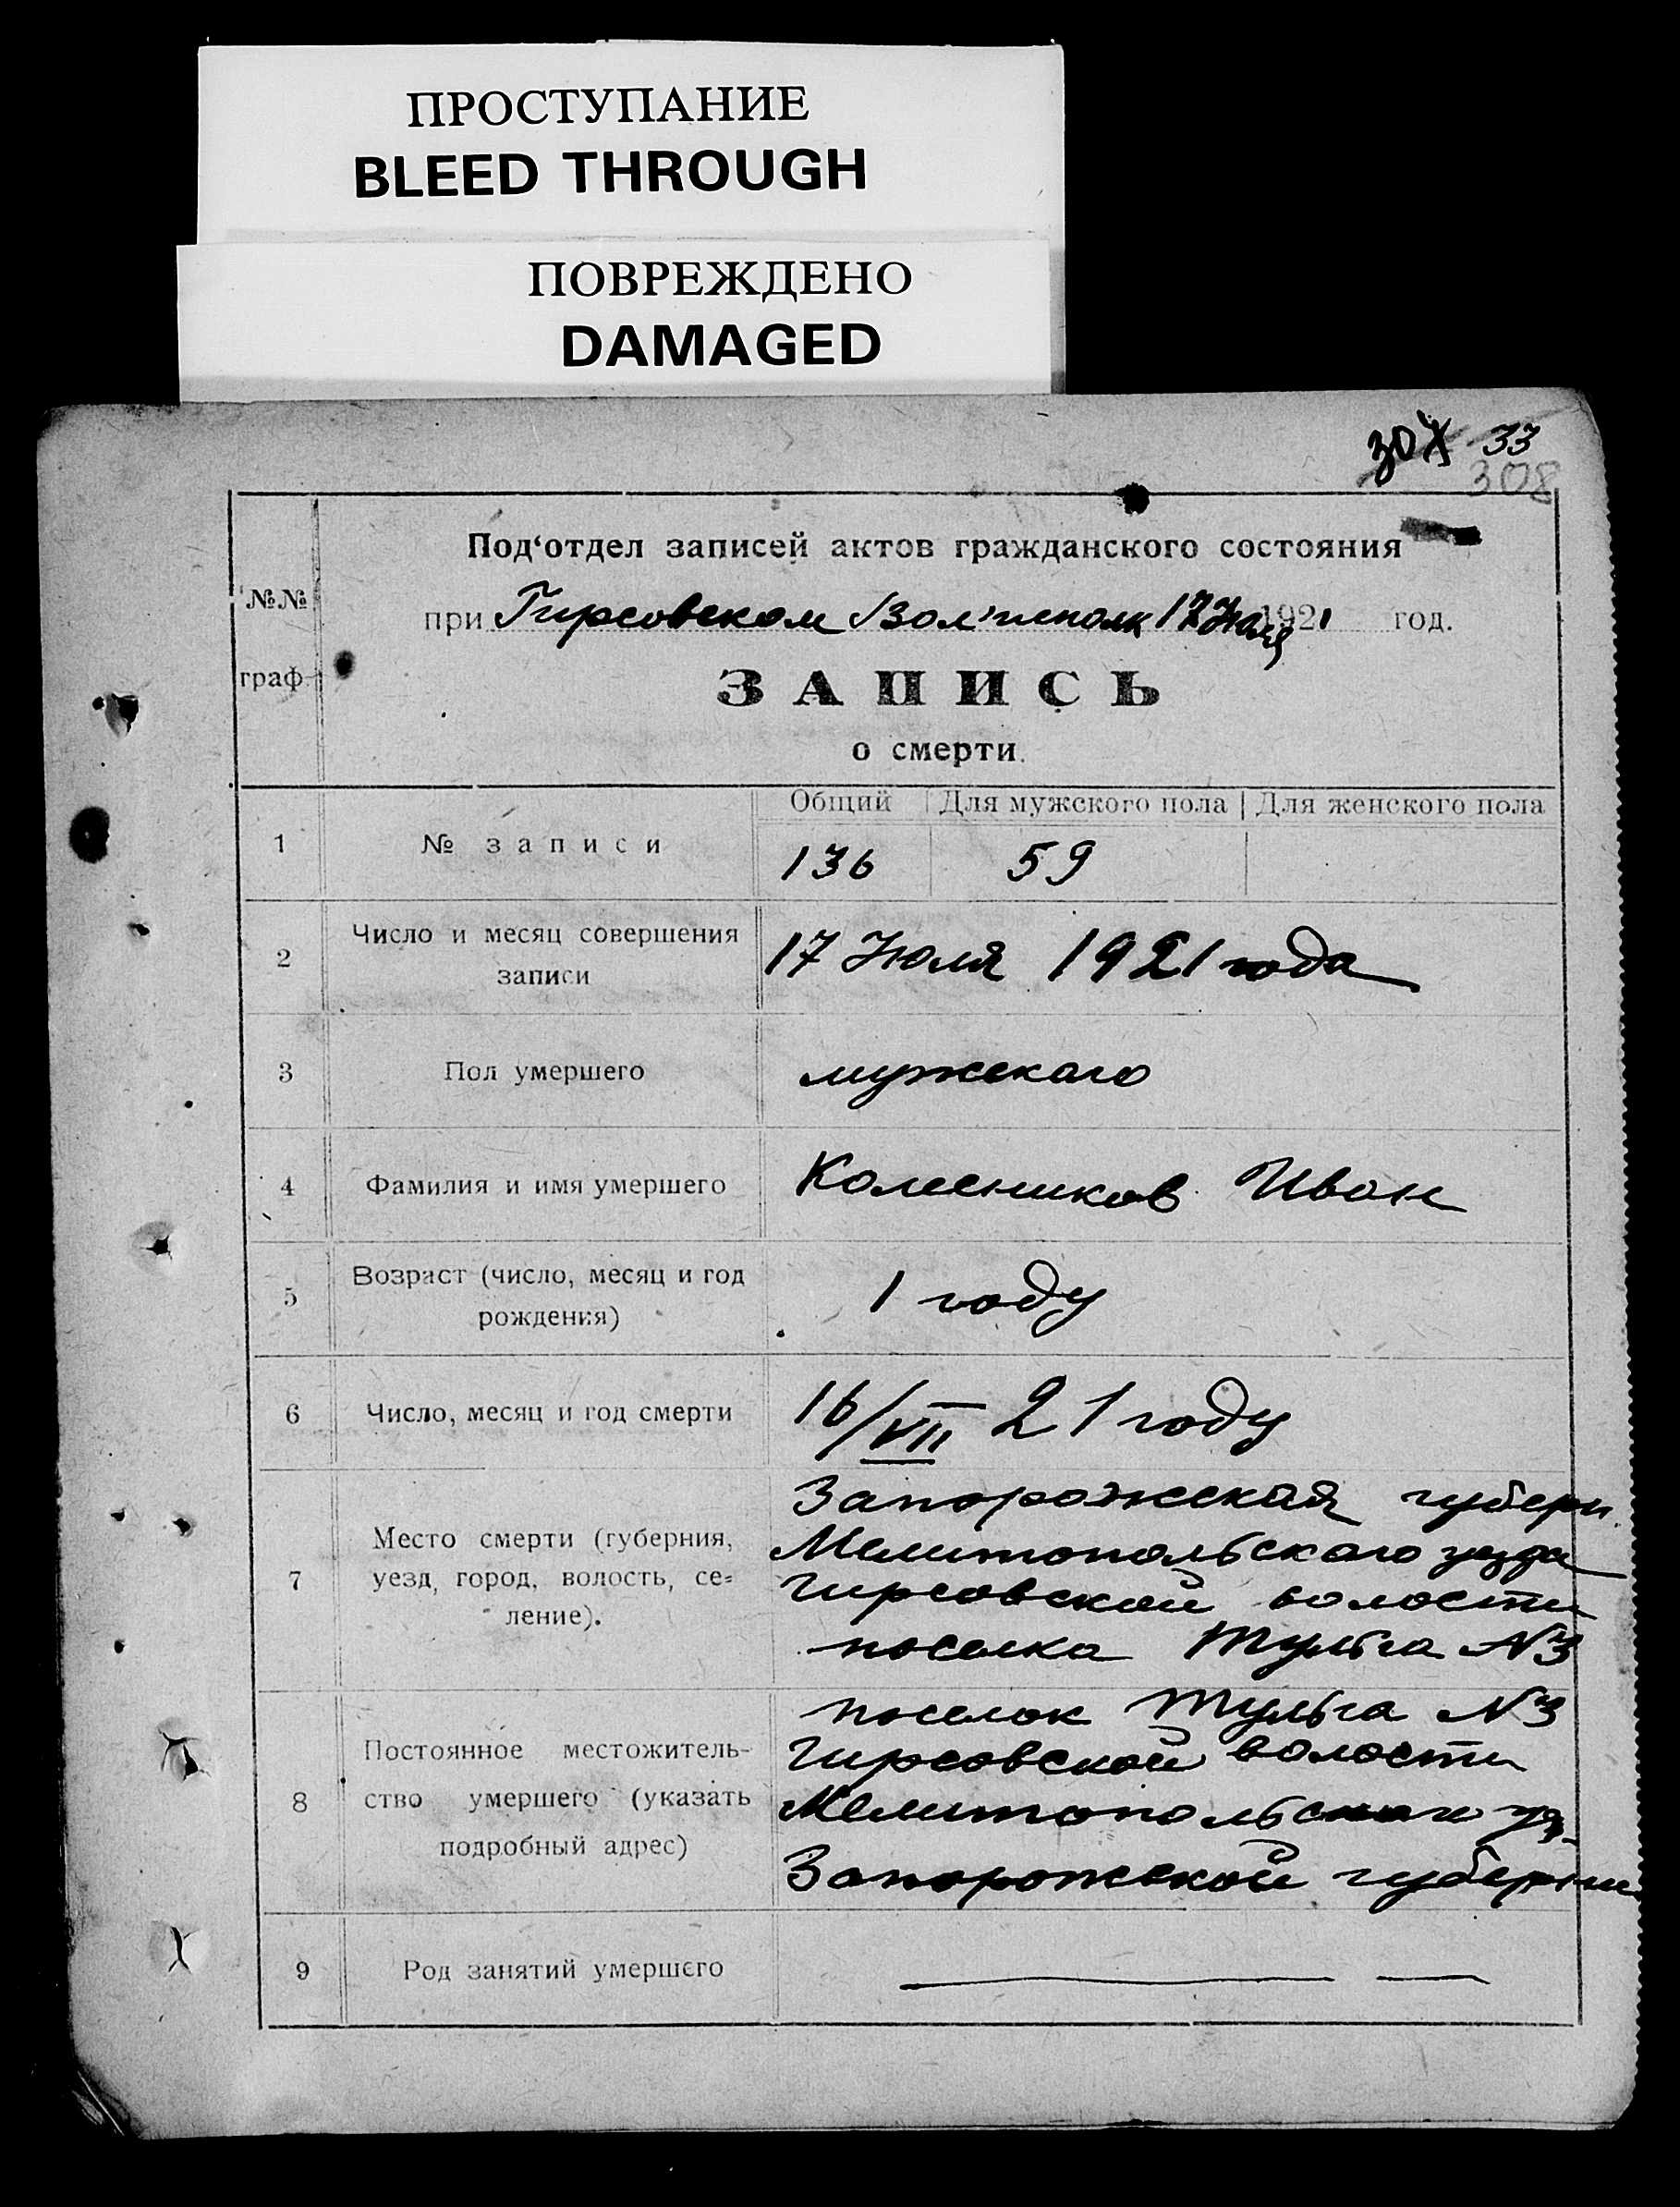 ПРОСТУПАНИЕ
BLEED THROUGH
ПОВРЕЖДЕНО
DAMAGED
33
308
№№ граф
Под‘отдел записей актов гражданского состояния
при Гирсовском Вол'исполк 17 Июля 1921 год.
ЗАПИСЬ
о смерти.
Общий Для мужского пола Для женского пола
1 № записи 136 59
2 Число и месяц совершения
записи 17 Июля 1921 года
3 Пол умершего мужскаго
4 Фамилия и имя умершего Колесников Иван
5 Возраст (число, месяц и год
рождения) 1 году
6 Число, месяц и год смерти 16/VII 21 году
7 Место смерти (губерния,
уезд, город, волость, се=
ление).
Запорожская губерн.
Мелитопольскаго уезда
Гирсовской волости
поселка Тульга N3
8 Постоянное местожитель-
ство умершего (указать
подробный адрес)
поселок Тульга N3
Гирсовской волости
Мелитопольскаго уз.
Запорожской губернии
9 Род занятий умершего